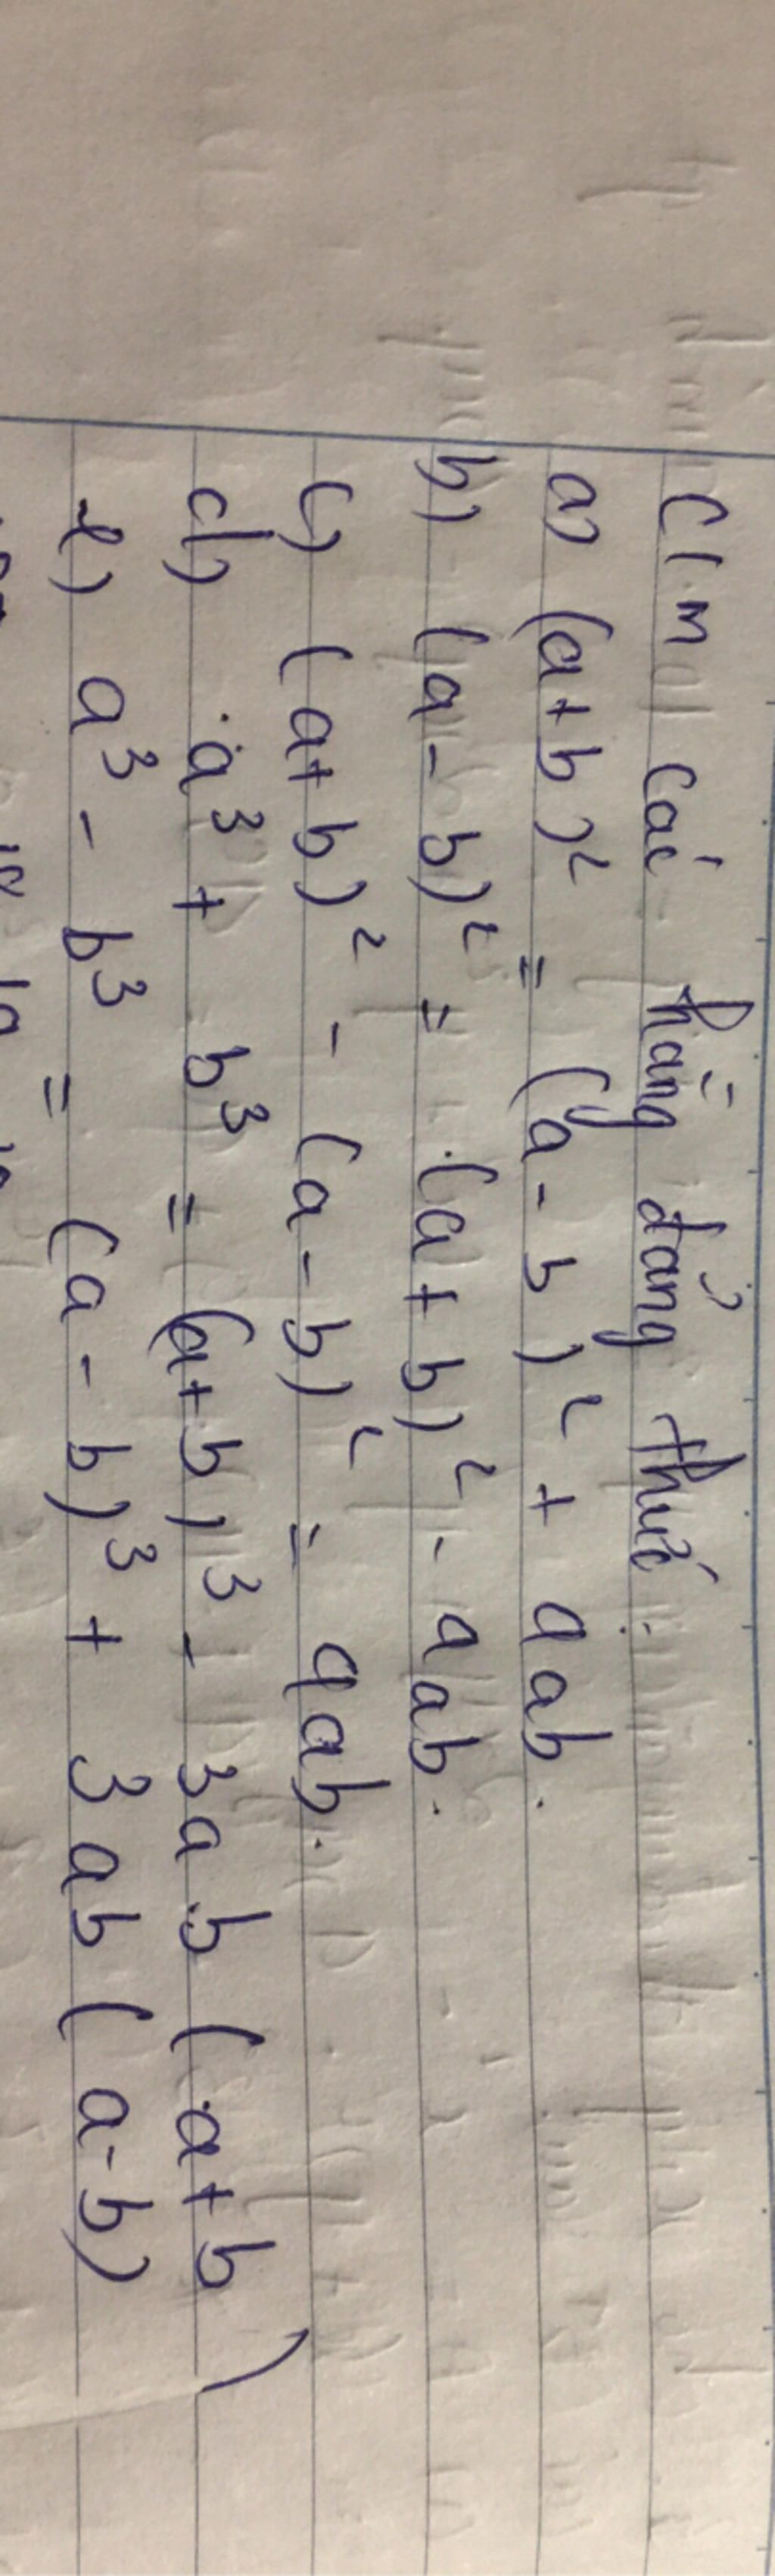 CM các hằng đẳng thức:
a) (a+b)² = (a-b)² + 4ab.
b) (a-b)² = (a+b)² - 4ab.
c) (a+b)² - (a-b)² = 4ab.
d) a³ + b³ = (a+b)³ - 3ab(a+b)
e) a³ - b³ = (a-b)³ + 3ab(a-b)